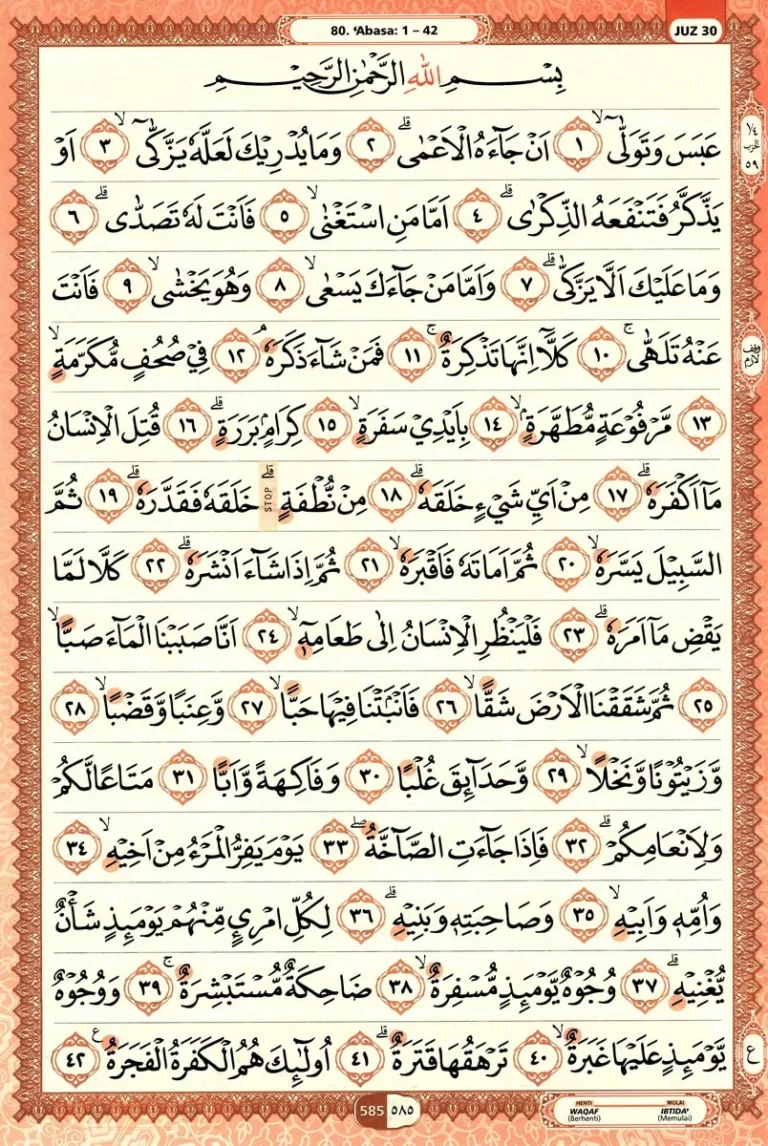 80. ‘Abasa: 1 – 42
JUZ 30
بِسْمِ اللّٰهِ الرَّحْمٰنِ الرَّحِيْمِ
عَبَسَ وَتَوَلّٰىٓۙ ١ اَنْ جَاۤءَهُ الْاَعْمٰىۗ ٢ وَمَا يُدْرِيْكَ لَعَلَّهٗ يَزَّكّٰىٓۙ ٣ اَوْ
يَذَّكَّرُ فَتَنْفَعَهُ الذِّكْرٰىۗ ٤ اَمَّا مَنِ اسْتَغْنٰىۙ ٥ فَاَنْتَ لَهٗ تَصَدّٰىۗ ٦
وَمَا عَلَيْكَ اَلَّا يَزَّكّٰىۗ ٧ وَاَمَّا مَنْ جَاۤءَكَ يَسْعٰىۙ ٨ وَهُوَ يَخْشٰىۙ ٩ فَاَنْتَ
عَنْهُ تَلَهّٰىۚ ١٠ كَلَّآ اِنَّهَا تَذْكِرَةٌۚ ١١ فَمَنْ شَاۤءَ ذَكَرَهٗۘ ١٢ فِيْ صُحُفٍ مُّكَرَّمَةٍۙ
١٣ مَّرْفُوْعَةٍ مُّطَهَّرَةٍۢۙ ١٤ بِاَيْدِيْ سَفَرَةٍۙ ١٥ كِرَامٍۢ بَرَرَةٍۗ ١٦ قُتِلَ الْاِنْسَانُ
مَآ اَكْفَرَهٗۗ ١٧ مِنْ اَيِّ شَيْءٍ خَلَقَهٗۗ ١٨ مِنْ نُّطْفَةٍۗ STOP خَلَقَهٗ فَقَدَّرَهٗۗ ١٩ ثُمَّ
السَّبِيْلَ يَسَّرَهٗۙ ٢٠ ثُمَّ اَمَاتَهٗ فَاَقْبَرَهٗۙ ٢١ ثُمَّ اِذَا شَاۤءَ اَنْشَرَهٗۗ ٢٢ كَلَّا لَمَّا
يَقْضِ مَآ اَمَرَهٗۗ ٢٣ فَلْيَنْظُرِ الْاِنْسَانُ اِلٰى طَعَامِهٖٓۙ ٢٤ اَنَّا صَبَبْنَا الْمَاۤءَ صَبًّاۙ
٢٥ ثُمَّ شَقَقْنَا الْاَرْضَ شَقًّاۙ ٢٦ فَاَنْۢبَتْنَا فِيْهَا حَبًّاۙ ٢٧ وَّعِنَبًا وَّقَضْبًاۙ ٢٨
وَّزَيْتُوْنًا وَّنَخْلًاۙ ٢٩ وَّحَدَاۤىِٕقَ غُلْبًا ٣٠ وَفَاكِهَةً وَّاَبًّا ٣١ مَتَاعًا لَّكُمْ
وَلِاَنْعَامِكُمْۗ ٣٢ فَاِذَا جَاۤءَتِ الصَّاۤخَّةُۖ ٣٣ يَوْمَ يَفِرُّ الْمَرْءُ مِنْ اَخِيْهِۙ ٣٤
وَاُمِّهٖ وَاَبِيْهِۙ ٣٥ وَصَاحِبَتِهٖ وَبَنِيْهِۗ ٣٦ لِكُلِّ امْرِئٍ مِّنْهُمْ يَوْمَىِٕذٍ شَأْنٌ
يُّغْنِيْهِۗ ٣٧ وُجُوْهٌ يَّوْمَىِٕذٍ مُّسْفِرَةٌۙ ٣٨ ضَاحِكَةٌ مُّسْتَبْشِرَةٌۚ ٣٩ وَوُجُوْهٌ
يَّوْمَىِٕذٍ عَلَيْهَا غَبَرَةٌۙ ٤٠ تَرْهَقُهَا قَتَرَةٌۗ ٤١ اُولٰۤىِٕكَ هُمُ الْكَفَرَةُ الْفَجَرَةُࣖ ٤٢
١/٤ الحزب ٥٩
وقف لازم
ع
585 ٥٨٥
HENTI WAQAF (Berhenti)
MULAI IBTIDA’ (Memulai)